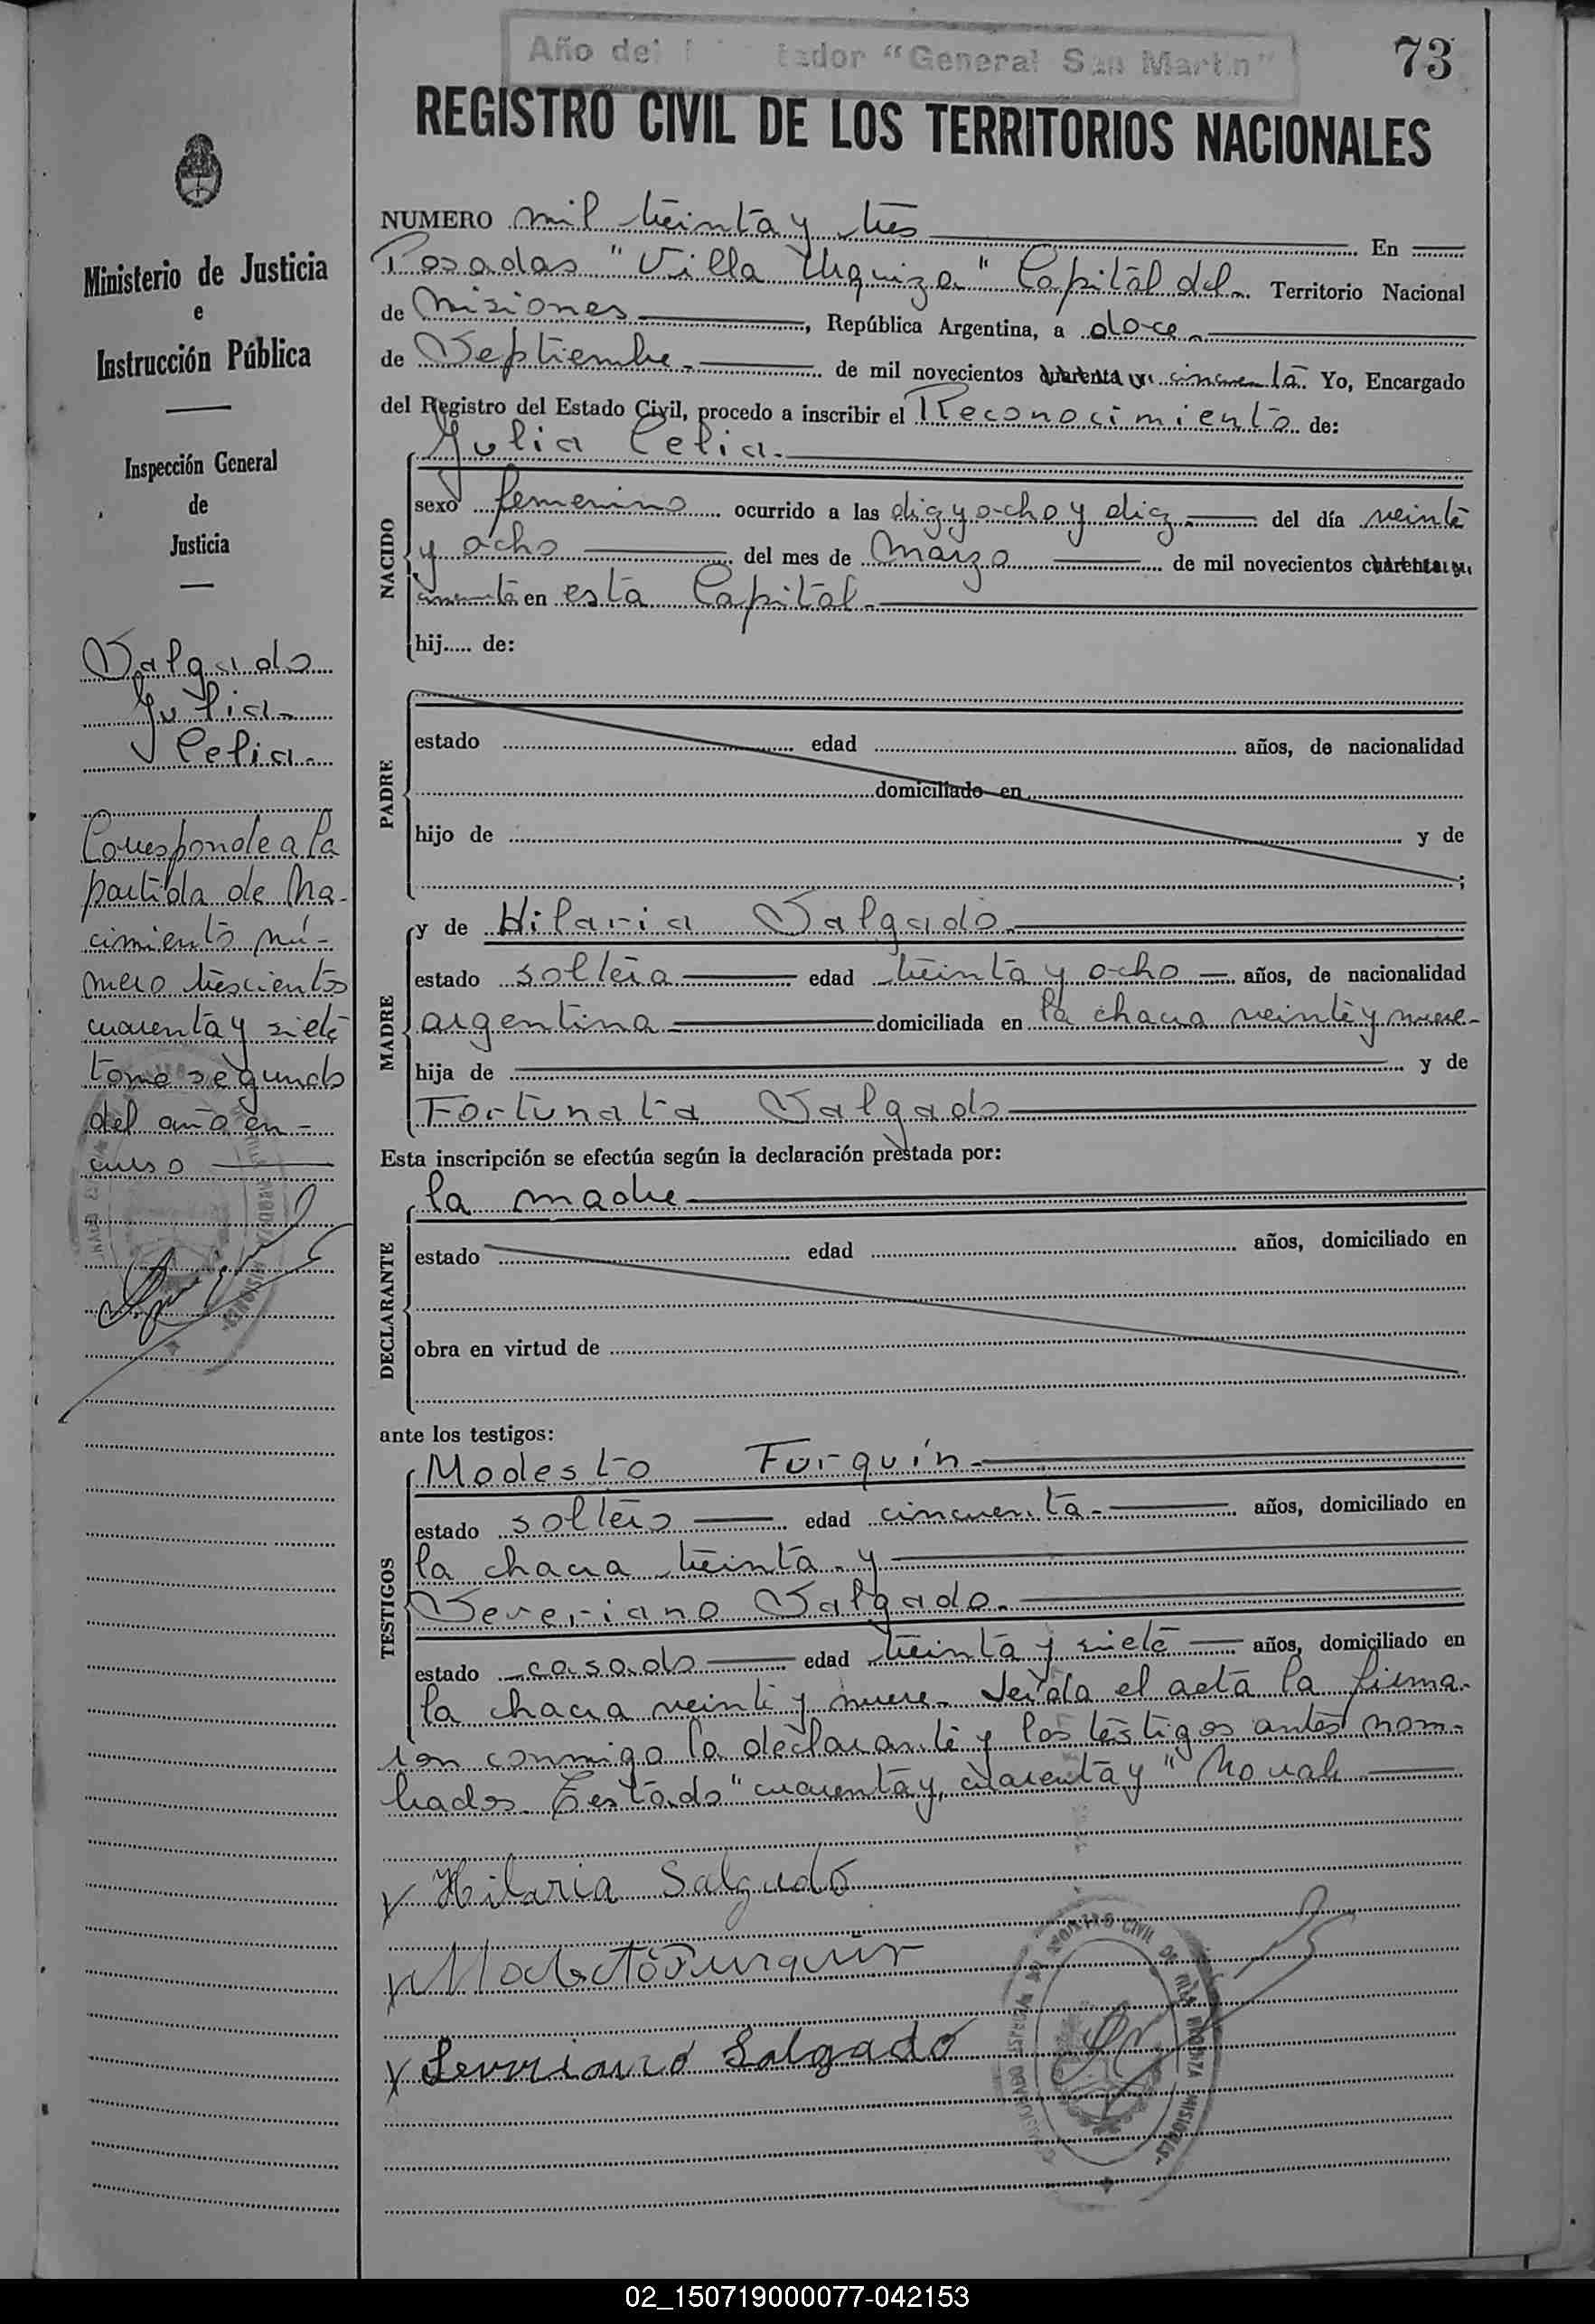 Año del tador "General San Martin"
73
REGISTRO CIVIL DE LOS TERRITORIOS NACIONALES
Ministerio de Justicia
e
Instrucción Pública
Inspección General
de
Justicia
Salgado
Julia
Celia.
Corresponde a la
partida de Na-
cimiento nú-
mero trescientos
cuarenta y siete
tomo segundo
del año en -
curso
NUMERO mil treinta y tres En
Posadas "Villa Urquiza" Capital del Territorio Nacional
de Misiones, República Argentina, a doce
de Septiembre de mil novecientos cuarenta y cincuenta. Yo, Encargado
del Registro del Estado Civil, procedo a inscribir el Reconocimiento de:
Julia Celia.
NACIDO
sexo femenino ocurrido a las diez y ocho y diez del día veinte
y ocho del mes de Marzo de mil novecientos cuarenta y
cincuenta en esta Capital.
hij..... de:
PADRE
estado edad años, de nacionalidad
domiciliado en
hijo de y de
;
MADRE
y de Hilaria Salgado.
estado soltera edad treinta y ocho años, de nacionalidad
argentina domiciliada en la chacra veinte y nueve-
hija de y de
Fortunata Salgado
Esta inscripción se efectúa según la declaración prestada por:
DECLARANTE
la madre
estado edad años, domiciliado en
obra en virtud de
ante los testigos:
TESTIGOS
Modesto Furquín.
estado soltero edad cincuenta. años, domiciliado en
la chacra treinta y
Severiano Salgado.
estado casado edad treinta y siete años, domiciliado en
la chacra veinte y nueve. Leída el acta la firma-
ron conmigo la declarante y los testigos antes nom-
brados. Testado "cuarenta y, cuarenta y" No vale
x Hilaria Salgado
x Modesto Furquin
x Severiano Salgado
REGISTRO CIVIL DE MISIONES
02_150719000077-042153